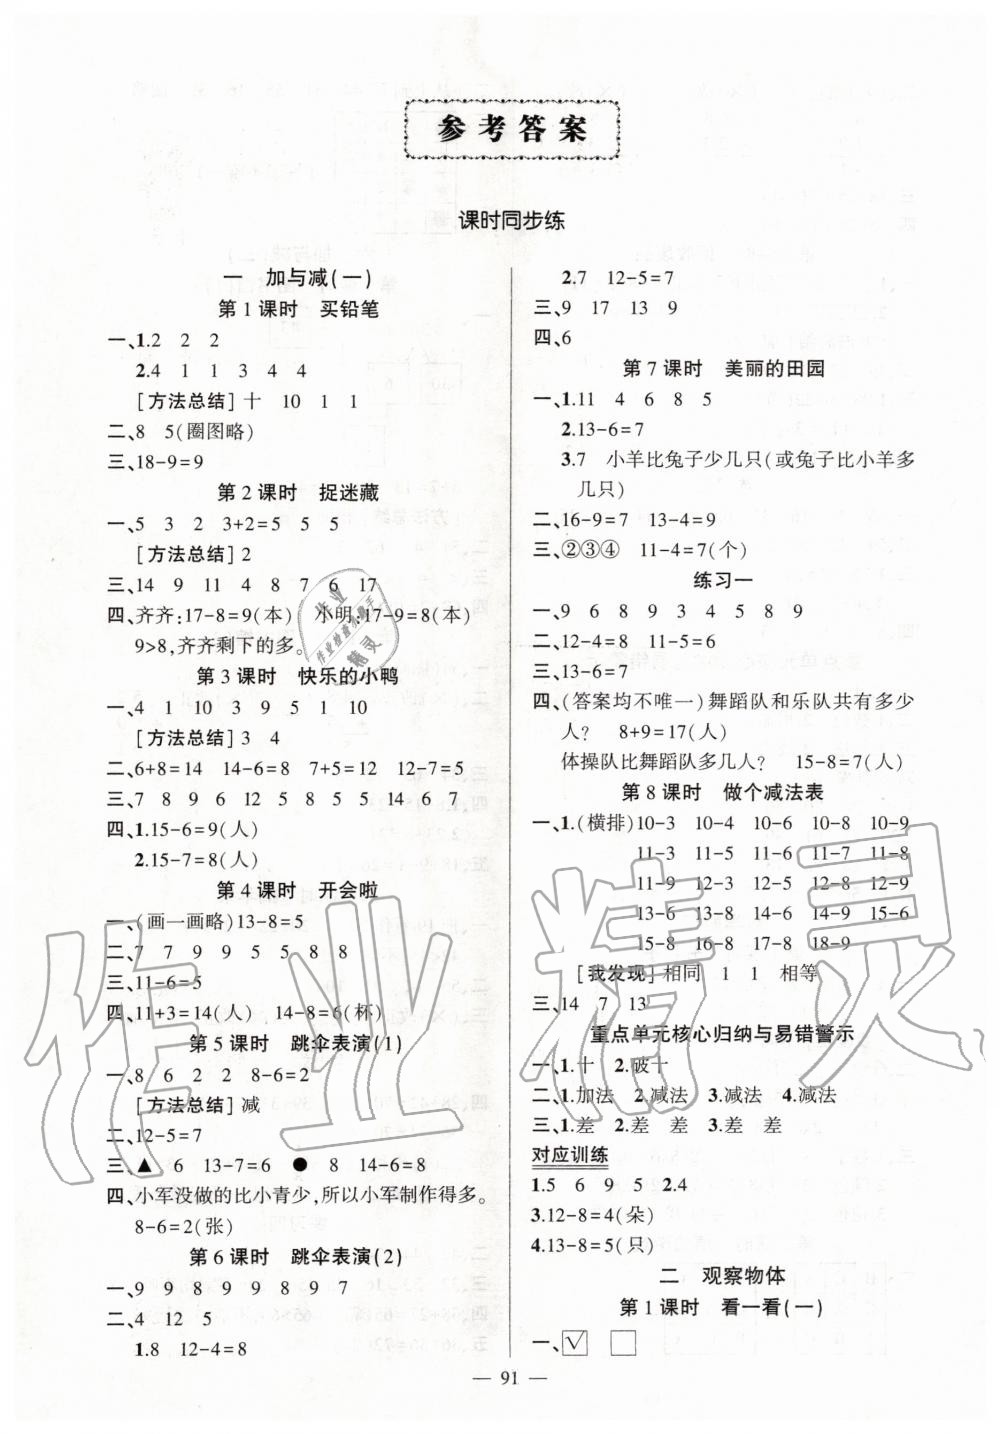 参考答案
课时同步练
一 加与减(一)
第1课时 买铅笔
一、1.2 2 2
2.4 1 1 3 4 4
[方法总结]十 10 1 1
二、8 5(圈图略)
三、18-9=9
第2课时 捉迷藏
一、5 3 2 3+2=5 5 5
[方法总结]2
三、14 9 11 4 8 7 6 17
四、齐齐:17-8=9(本) 小明:17-9=8(本)
9>8,齐齐剩下的多。
第3课时 快乐的小鸭
一、4 1 10 3 9 5 1 10
[方法总结]3 4
二、6+8=14 14-6=8 7+5=12 12-7=5
三、7 8 9 6 12 5 8 5 5 14 6 7
四、1.15-6=9(人)
2.15-7=8(人)
第4课时 开会啦
一、(画一画略)13-8=5
二、7 7 9 9 5 5 8 8
三、11-6=5
四、11+3=14(人) 14-8=6(杯)
第5课时 跳伞表演(1)
一、8 6 2 2 8-6=2
[方法总结]减
二、12-5=7
三、▲ 6 13-7=6 ● 8 14-6=8
四、小军没做的比小青少,所以小军制作得多。
8-6=2(张)
第6课时 跳伞表演(2)
一、9 9 8 9 9 8 9 7
二、4 12 5
1.8 12-4=8
2.7 12-5=7
三、9 17 13 9
四、6
第7课时 美丽的田园
一、1.11 4 6 8 5
2.13-6=7
3.7 小羊比兔子少几只(或兔子比小羊多
几只)
二、16-9=7 13-4=9
三、②③④ 11-4=7(个)
练习一
一、9 6 8 9 3 4 5 8 9
二、12-4=8 11-5=6
三、13-6=7
四、(答案均不唯一)舞蹈队和乐队共有多少
人? 8+9=17(人)
体操队比舞蹈队多几人? 15-8=7(人)
第8课时 做个减法表
一、1.(横排)10-3 10-4 10-6 10-8 10-9
11-3 11-5 11-6 11-7 11-8
11-9 12-3 12-5 12-8 12-9
13-6 13-8 14-7 14-9 15-6
15-8 16-8 17-8 18-9
[我发现]相同 1 1 相等
三、14 7 13
重点单元核心归纳与易错警示
一、1.十 2.破十
二、1.加法 2.减法 3.减法 4.减法
三、1.差 2.差 差 3.差 差
对应训练
1.5 6 9 5 2.4
3.12-8=4(朵)
4.13-8=5(只)
二 观察物体
第1课时 看一看(一)
一、☑ □
— 91 —
作业精灵
作业
作业检查小助手
精灵